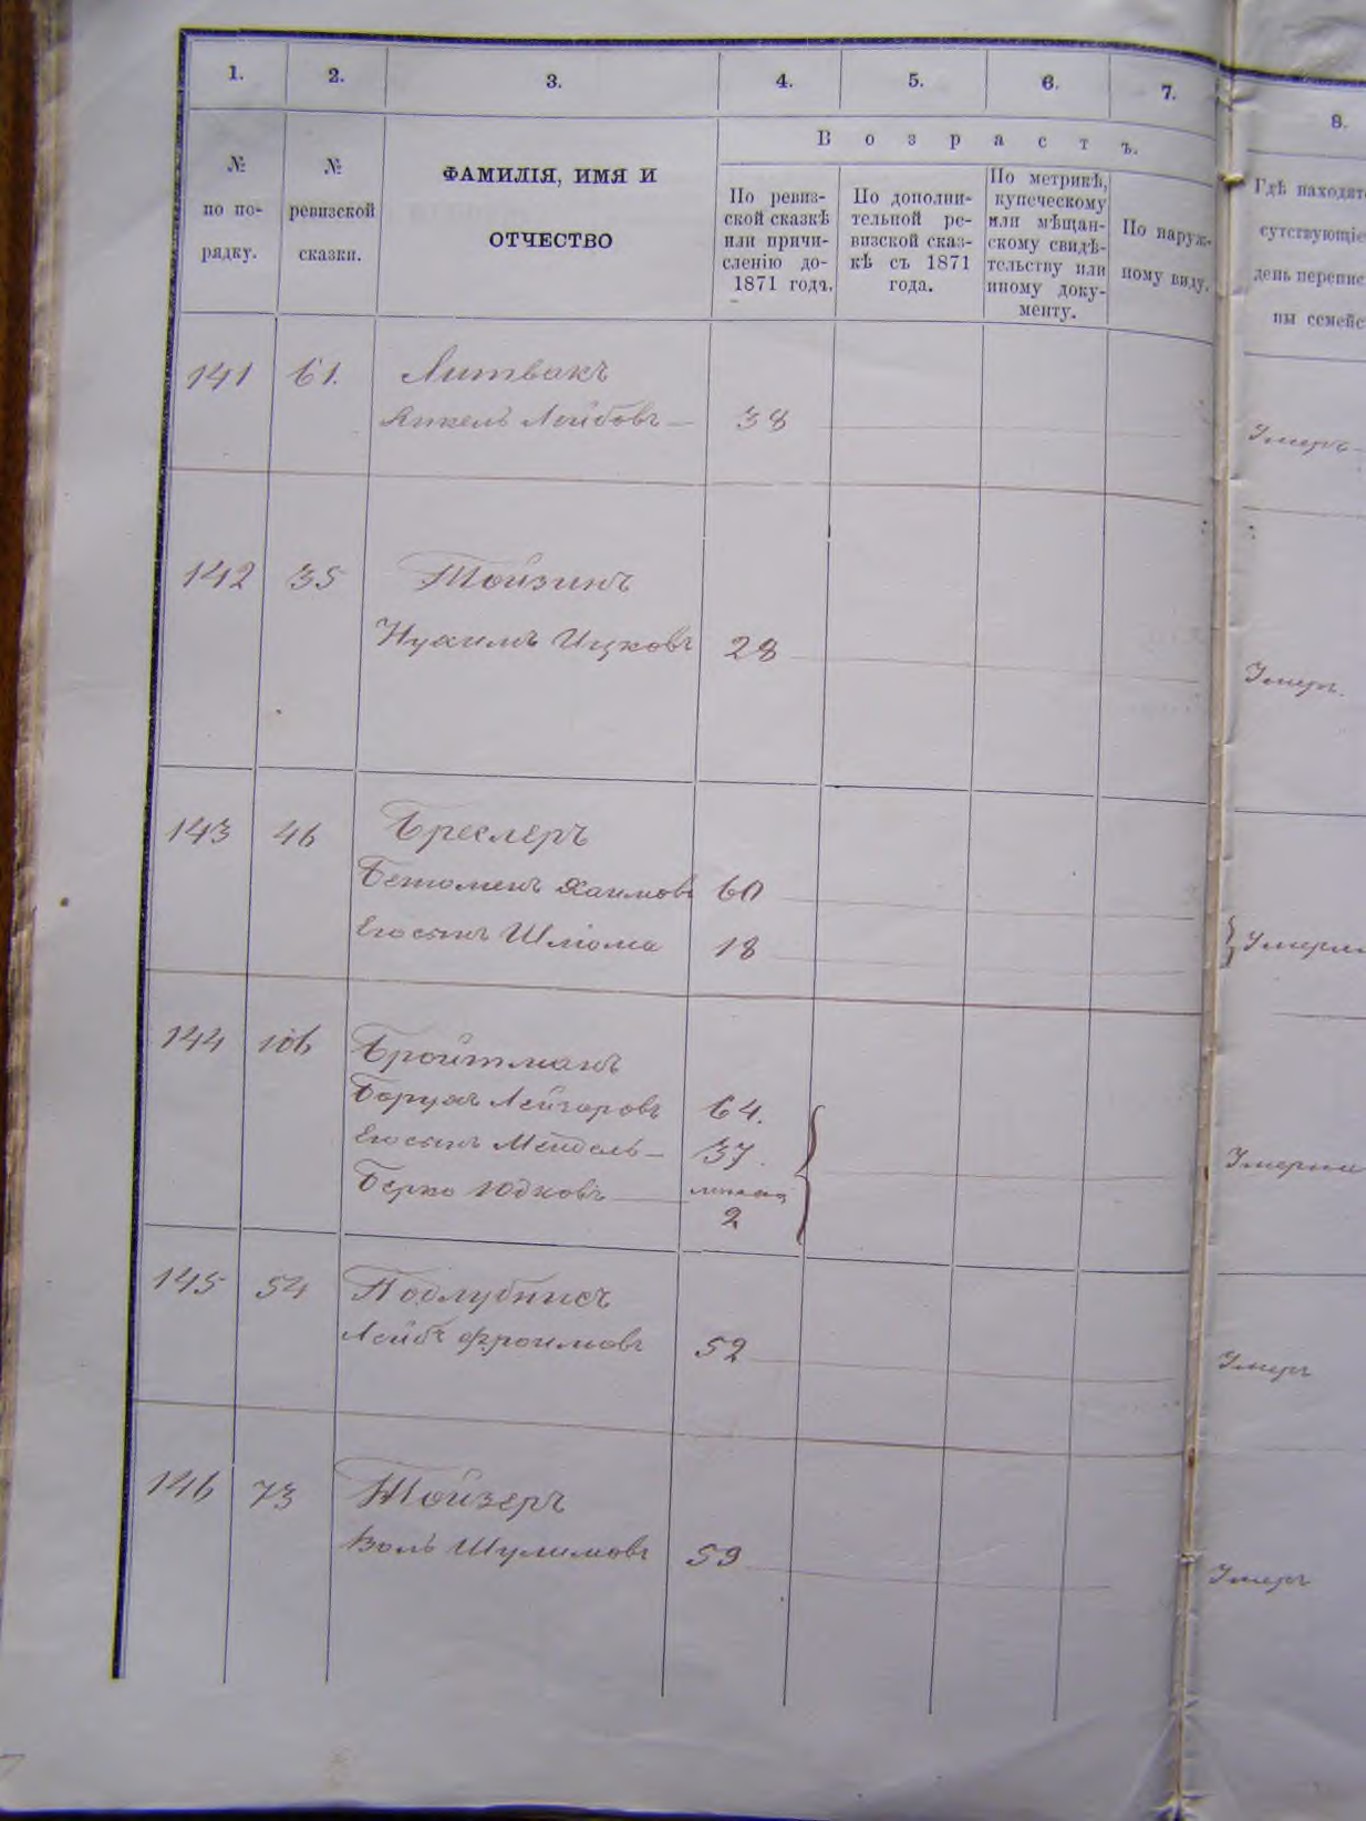 1. 2. 3. 4. 5. 6. 7. 8.
№ по по-рядку.
№ ревизской сказки.
ФАМИЛІЯ, ИМЯ И
ОТЧЕСТВО
Возрастъ.
По ревиз-
ской сказкѣ
или причи-
сленію до-
1871 года.
По дополни-
тельной ре-
визской сказ-
кѣ съ 1871
года.
По метрикѣ,
купеческому
или мѣщан-
скому свидѣ-
тельству или
иному доку-
менту.
По наруж-
ному виду.
Гдѣ находят
сутствующіе
день перепис
ны семейс
141 61. Литвакъ
Янкель Лейбовъ 38 Умеръ
142 35 Тойзинъ
Нухимъ Ицковъ 28 Умеръ.
143 46 Бреслеръ
Хаимовъ 60
Его сынъ Шлiома 18 Умерли
144 106 Бройтманъ
Борухъ Лейзоровъ 64.
Его сынъ Мендель 37.
Берко Юдковъ
2 Умерли
145 54
Лейбъ Фроимовъ 52 Умеръ
146 73 Тойзеръ
Шулимовъ 59 Умеръ